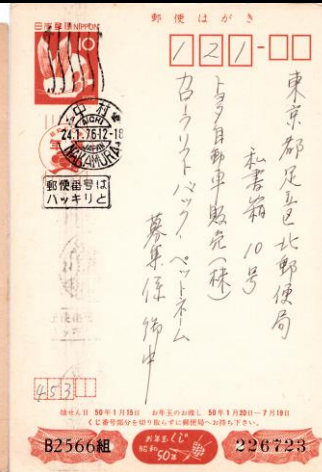 郵便はがき
日本郵便 NIPPON
10
121-
中村
AICHI
24.1.76.12-18
JAPAN
NAKAMURA
郵便番号は
ハッキリと
東京都足立区北郵便局
私書箱 10号
トヨタ自動車販売(株)
カローラリフトバック・ペットネーム
募集係 御中
453
抽せん日 50年1月15日 お年玉のお渡し 50年1月20日-7月19日
くじ番号部分を切り取らずに郵便局へお持ち下さい。
B2566組
お年玉くじ
昭和
50年
226723